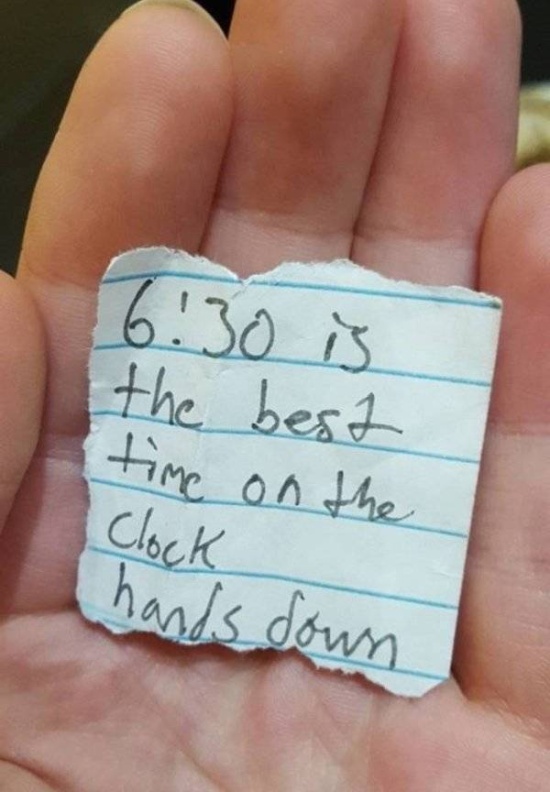 6:30 is
the best
time on the
Clock
hands down